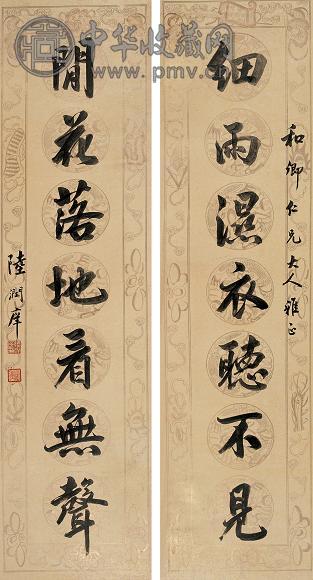 中华收藏网
www.pmv.cn
和卿仁兄大人雅正
細雨濕衣聽不見
閒花落地看無聲
陸潤庠